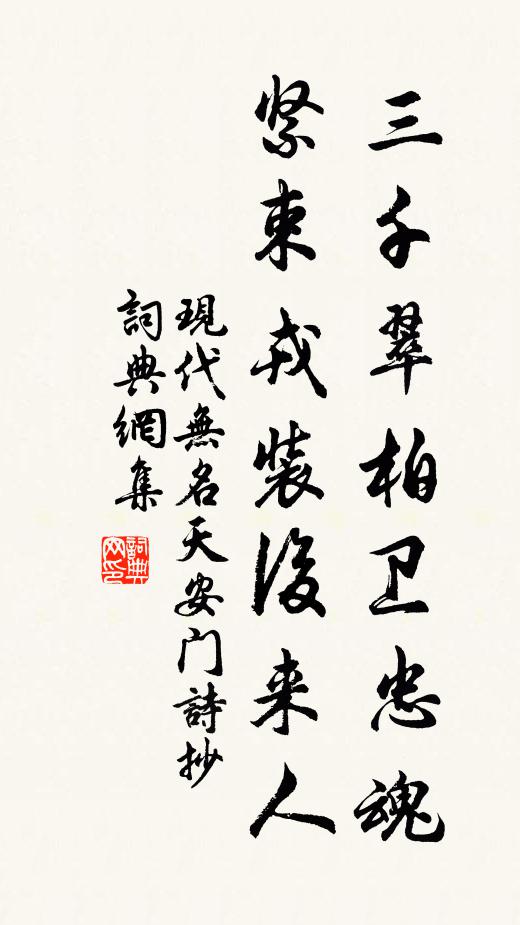 三千翠柏卫忠魂
紧束戎裝後来人
現代無名天安门詩抄
詞典網集
詞典网印